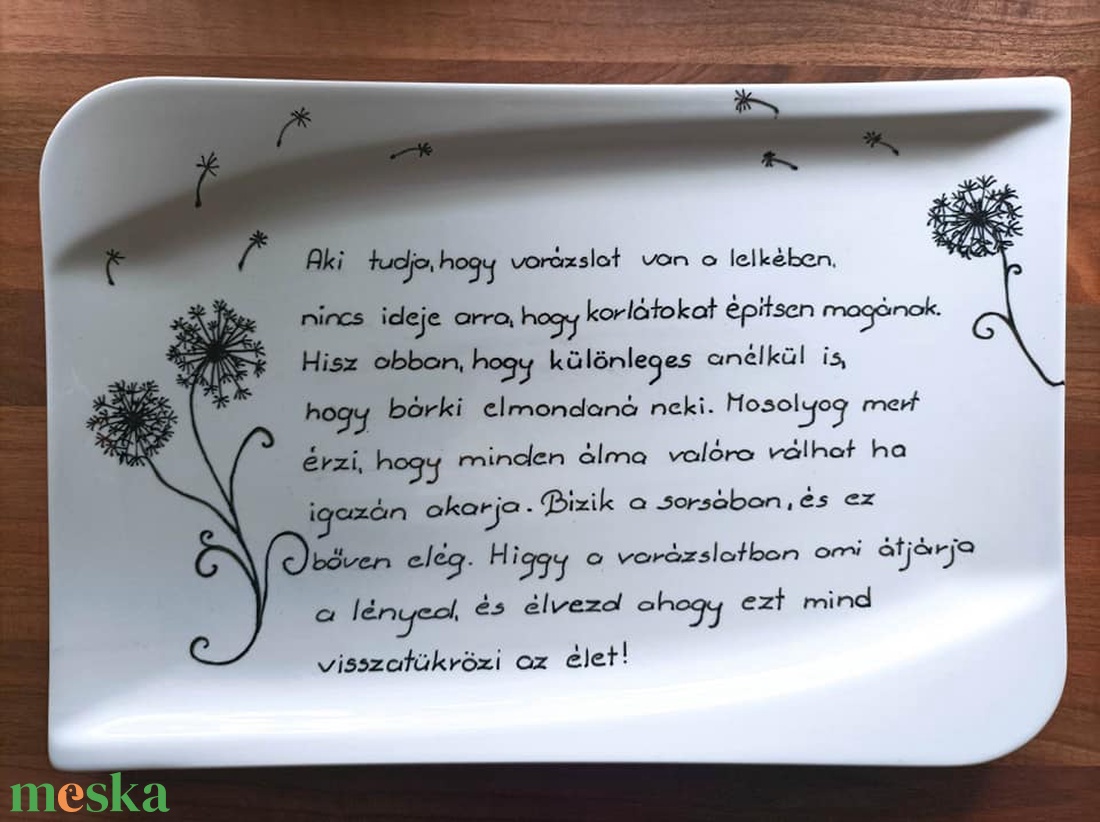 Aki tudja, hogy varázslat van a lelkében,
nincs ideje arra, hogy korlátokat építsen magának.
Hisz abban, hogy különleges anélkül is,
hogy bárki elmondaná neki. Mosolyog mert
érzi, hogy minden álma valóra válhat ha
igazán akarja. Bízik a sorsában, és ez
bőven elég. Higgy a varázslatban ami átjárja
a lényed, és élvezd ahogy ezt mind
visszatükrözi az élet!
meska